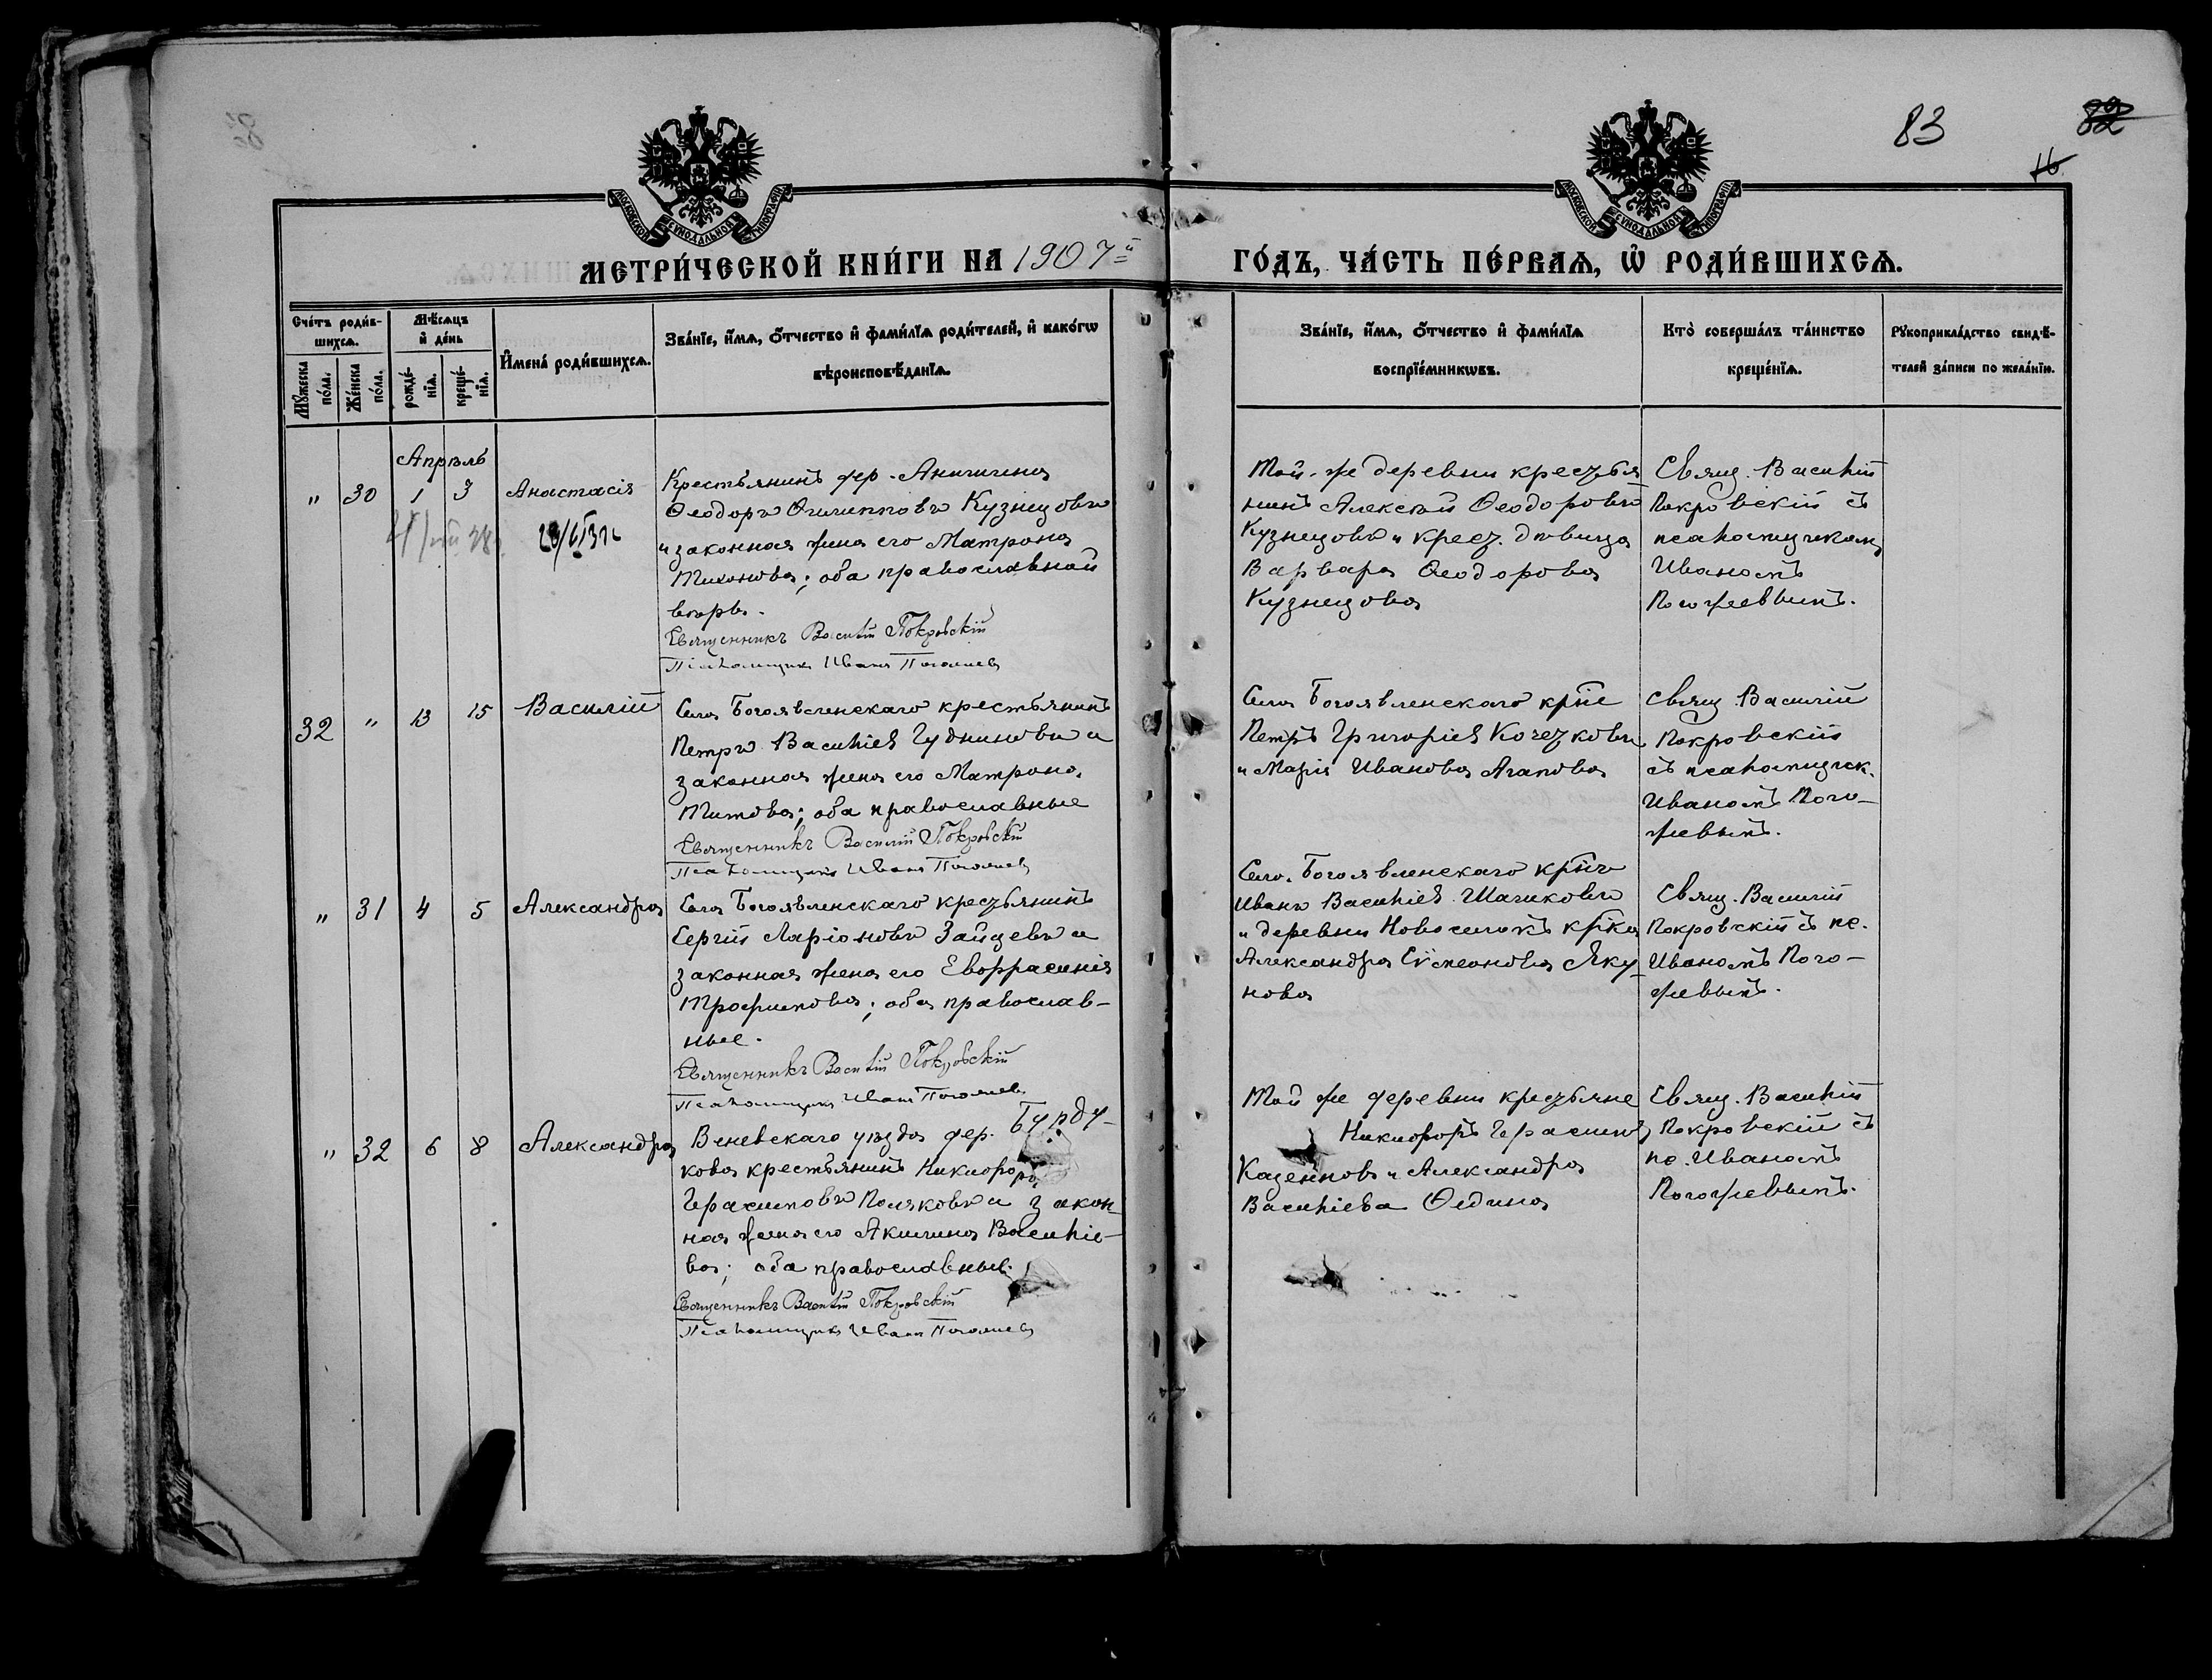 83
82
16
МОСКОВСКОЙ СѴНОДАЛЬНОЙ ТИПОГРАФІИ
МОСКОВСКОЙ СѴНОДАЛЬНОЙ ТИПОГРАФІИ
МЕТРИ́ЧЕСКОЙ КНИ́ГИ НА 1907й
ГО́ДЪ, ЧА́СТЬ ПЕ́РВАѦ, Ѡ҆ РОДИ́ВШИХСѦ.
Сче́тъ роди́в-
шихсѧ.
Мꙋ́жеска по́ла.
Же́нска по́ла.
Мѣ́сѧцъ
и҆ де́нь
рожде́-
нїѧ.
креще́-
нїѧ.
И҆мена̀ роди́вшихсѧ.
Зва́нїе, и҆́мѧ, ѻ҆́тчество и҆ фами́лїѧ роди́телей, и҆ како́гѡ
вѣроисповѣ́данїѧ.
Зва́нїе, и҆́мѧ, ѻ҆́тчество и҆ фами́лїѧ
воспрїе́мникѡвъ.
Кто̀ соверша́лъ та́инство
креще́нїѧ.
Рꙋкоприкла́дство свидѣ́-
телей за́писи по жела́нїю.
Апрѣль
" 30 1 3 Анастасія
Крестьянинъ дер. Аничина
Ѳеодоръ Филипповъ Кузнецовъ
и законная жена его Матрона
Тихонова; оба православной
вѣры.
Священникъ Василій Покровскій
Псаломщикъ Иванъ Погожев
Той-же деревни крестья
нинъ Алексѣй Ѳеодоровъ
Кузнецовъ и крест. дѣвица
Варвара Ѳеодорова
Кузнецова
Свящ. Василій
Покровскій съ
псаломщикомъ
Иваномъ
Погожевымъ.
32 " 13 15 Василій
Села Богоявленскаго крестьянинъ
Петръ Василіев Гудниновъ и
законная жена его Матрона
Титова; оба православные
Священникъ Василій Покровскій
Псаломщикъ Иванъ Погожев
Села Богоявленскаго кр͞не
Петръ Григоріев Кочетковъ
и Марія Иванова Агапова
Свящ. Василій
Покровскій
съ псаломщик.
Иваномъ Пого-
жевымъ.
" 31 4 5 Александра
Села Богоявленскаго крестьянинъ
Сергій Ларіоновъ Зайцевъ и
законная жена его Евфрасинія
Трофимова; оба православ-
ные.
Священникъ Василій Покровскій
Псаломщикъ Иванъ Погожев.
Села Богоявленскаго
Иванъ Василіев Шашковъ
и деревни Новоселокъ
Александра Сѵмеонова Яку-
нова
Свящ. Василій
Покровскій съ пс.
Иваномъ Пого-
жевымъ.
" 32 6 8 Александра
Веневскаго уѣзда дер. Бурду-
кова крестьянинъ Никифоръ
Герасимовъ Поляковъ и закон-
ная жена его Акилина Василіе-
ва; оба православные.
Священникъ Василій Покровскій
Псаломщикъ Иванъ Погожев
Той же деревни крестьяне
Никифоръ Герасимов
Казеннов и Александра
Василіева Ѳедина
Свящ. Василій
Покровскій съ
пс. Иваномъ
Погожевымъ.